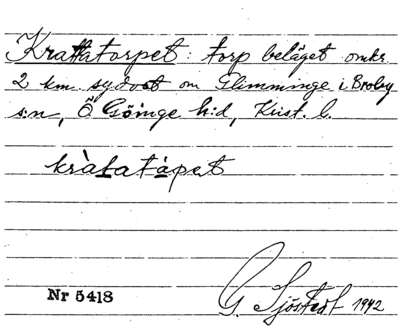 Krattatorpet: torp beläget omkr.
2 km. sydost om Glimminge i Broby
s:n, Ö Göinge h:d, Krist. l.
kràtatåpet
Nr 5418
G. Sjöstedt 1942